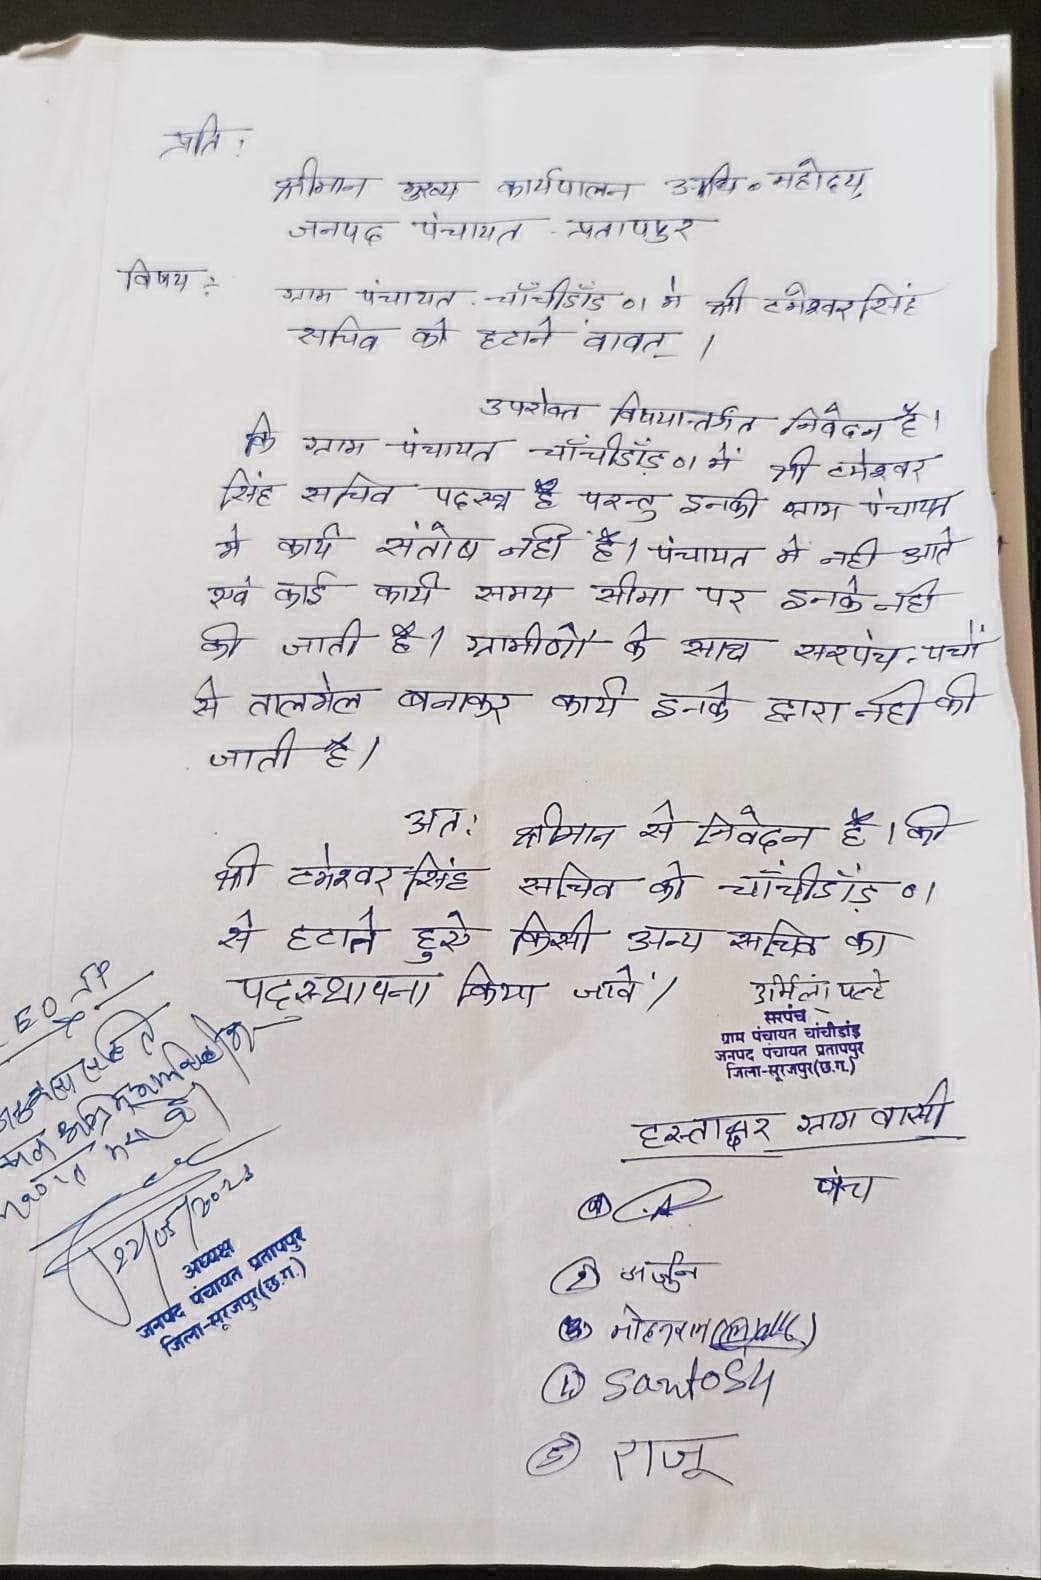 प्रति :
श्रीमान मुख्य कार्यपालन अधि० महोदय,
जनपद पंचायत - प्रतापपुर
विषय :- ग्राम पंचायत - चाँचीडाँड़ 01 मे श्री टमेश्वर सिंह
सचिव को हटाने बावत् ।
उपरोक्त विषयान्तर्गत निवेदन है।
कि ग्राम पंचायत चाँचीडाँड़ 01 में श्री टमेश्वर
सिंह सचिव पदस्थ है परन्तु इनकी ग्राम पंचायत
मे कार्य संतोष नही है। पंचायत में नही आते
एवं कोई कार्य समय सीमा पर इनके नही
की जाती है। ग्रामीणों के साथ सरपंच-पचों
से तालमेल बनाकर कार्य इनके द्वारा नही की
जाती है।
अत: श्रीमान से निवेदन है। की
श्री टमेश्वर सिंह सचिव को चाँचीडाँड़ 01
से हटाते हुये किसी अन्य सचिव का
पदस्थापना किया जावें।
उर्मिला
सरपंच
ग्राम पंचायत चांचीडांड़
जनपद पंचायत प्रतापपुर
जिला-सूरजपुर (छ.ग.)
हस्ताक्षर ग्राम वासी
पंच
② अर्जुन
③ मोहनराम
④ Santosh
⑤ राजू
22/05/2023
अध्यक्ष
जनपद पंचायत प्रतापपुर
जिला-सूरजपुर (छ.ग.)